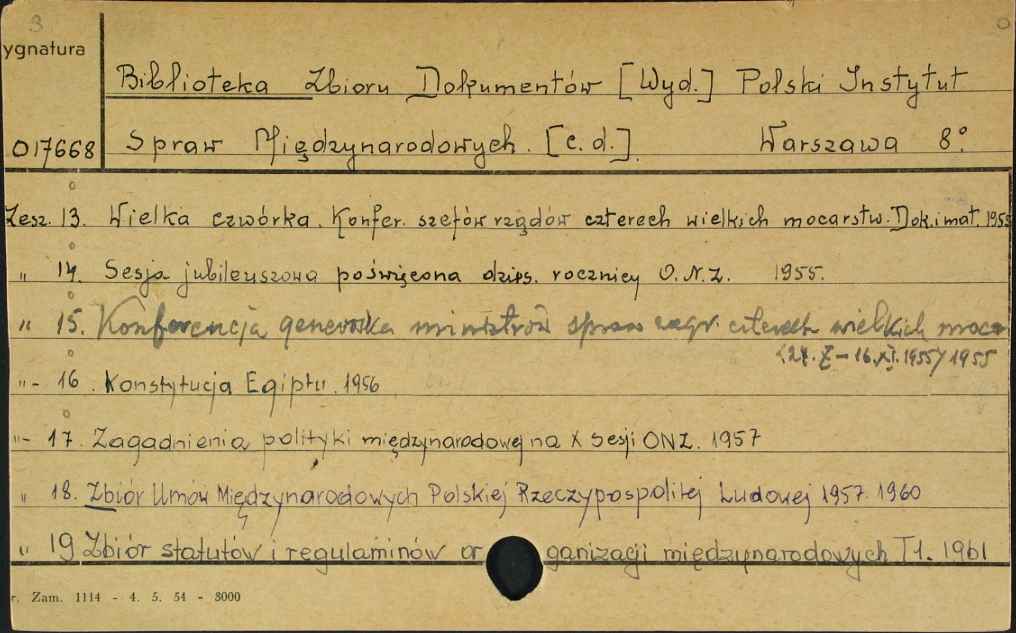 3
ygnatura
Biblioteka Zbioru Dokumentów [Wyd.] Polski Instytut
017668 Spraw Międzynarodowych. [c.d.]. Warszawa 8°.
Zesz. 13. Wielka czwórka. Konfer. szefów rządów czterech wielkich mocarstw. Dok. i mat. 1955
" 14. Sesja jubileuszowa poświęcona dzies. rocznicy O.N.Z. 1955.
" 15. Konferencja genewska ministrów spraw zagr. czterech wielkich moca
(27. X - 16. XI. 1955) 1955
"- 16. Konstytucja Egiptu. 1956
"- 17. Zagadnienia polityki międzynarodowej na X Sesji ONZ. 1957
" 18. Zbiór Umów Międzynarodowych Polskiej Rzeczypospolitej Ludowej 1957. 1960
" 19 Zbiór statutów i regulaminów or ganizacji międzynarodowych T 1. 1961
r. Zam. 1114 - 4. 5. 54 - 3000